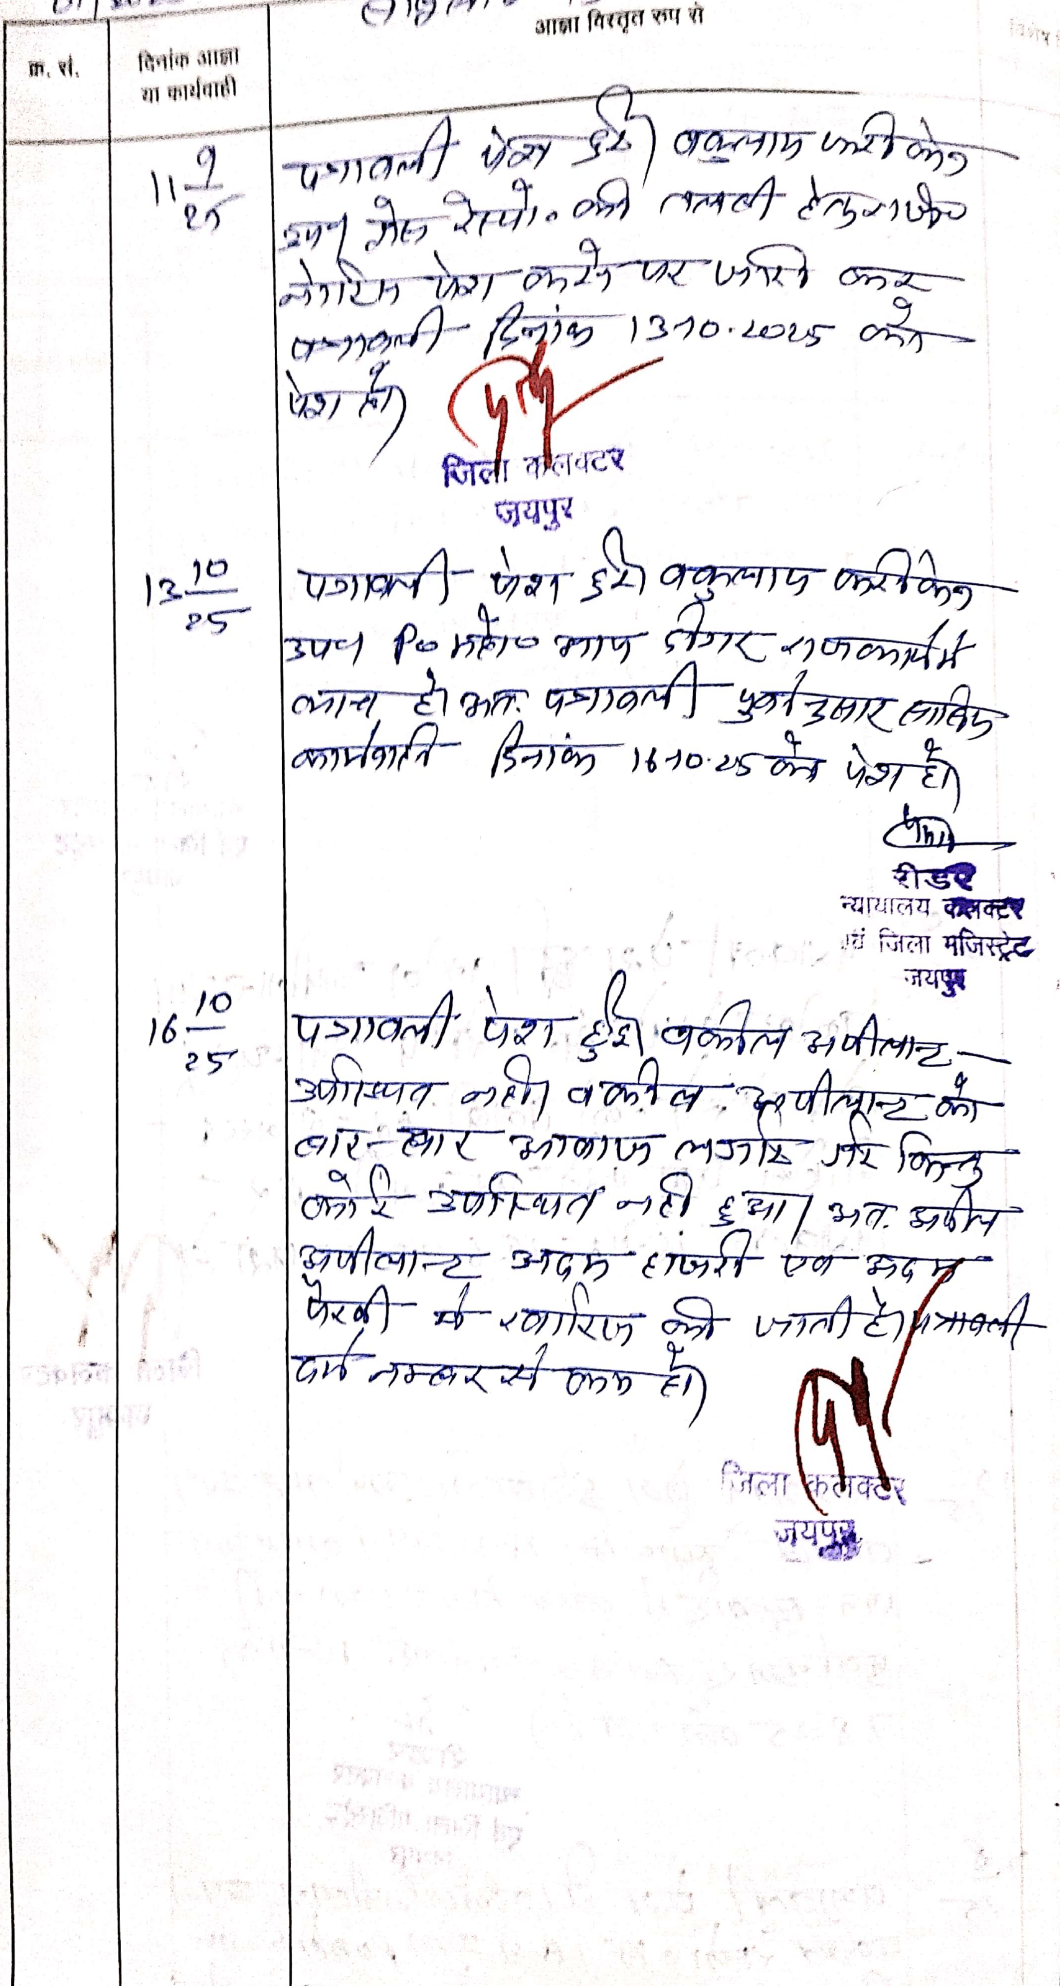 आज्ञा विस्तृत रूप से
क्र. सं.
दिनांक आज्ञा
या कार्यवाही
11 9/25
पत्रावली पेश हुई। वकुलाय फरीकेन
उप। शेष रेस्पो. की तलबी हेतु
नोटिस पेश करने पर जारी कर
पत्रावली दिनांक 13-10-2025 को
पेश हो।
जिला कलक्टर
जयपुर
13 10/25
पत्रावली पेश हुई। वकुलाय फरीकेन
उप। P० महो० राजकार्य में
व्यस्त है। अतः पत्रावली पुर्वानुसार साबिक
कार्यवाही दिनांक 16-10-25 को पेश हो।
रीडर
न्यायालय कलक्टर
एवं जिला मजिस्ट्रेट
जयपुर
16 10/25
पत्रावली पेश हुई। वकील अपीलान्ट
उपस्थित नही। वकील अपीलान्ट को
बार-बार आवाज लगाई गई किन्तु
कोई उपस्थित नही हुआ। अतः अपील
अपीलान्ट अदम हाजरी एवं अदम
पैरवी में खारिज की जाती है। पत्रावली
दर्ज नम्बर से कम हो।
जिला कलक्टर
जयपुर